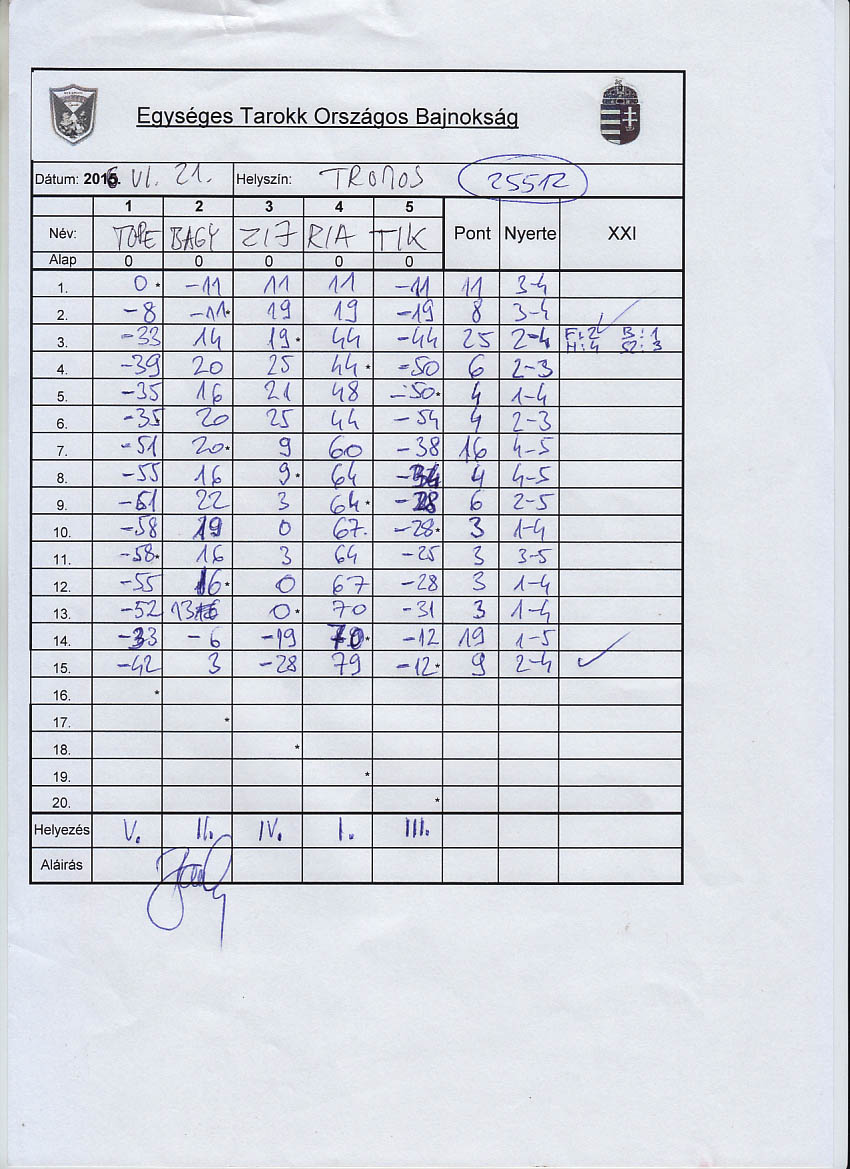 Egységes Tarokk Országos Bajnokság
Dátum: 2016. VI. 21. Helyszín: TROMOS 25512
1 2 3 4 5
Név: TOPE BAGY ZIJ RIA TIK Pont Nyerte XXI
Alap 0 0 0 0 0
1. 0* -11 11 11 -11 11 3-4
2. -8 -11* 19 19 -19 8 3-4
3. -33 14 19* 44 -44 25 2-4 F:2 B:1
H:4 SZ:3
4. -39 20 25 44* -50 6 2-3
5. -35 16 21 48 -50* 4 1-4
6. -35 20 25 44 -54 4 2-3
7. -51 20* 9 60 -38 16 4-5
8. -55 16 9* 64 -34 4 4-5
9. -61 22 3 64* -28 6 2-5
10. -58 19 0 67. -28* 3 1-4
11. -58* 16 3 64 -25 3 3-5
12. -55 16* 0 67 -28 3 1-4
13. -52 13 0* 70 -31 3 1-4
14. -33 -6 -19 70* -12 19 1-5
15. -42 3 -28 79 -12* 9 2-4
16. *
17. *
18. *
19. *
20. *
Helyezés V. II. IV. I. III.
Aláírás